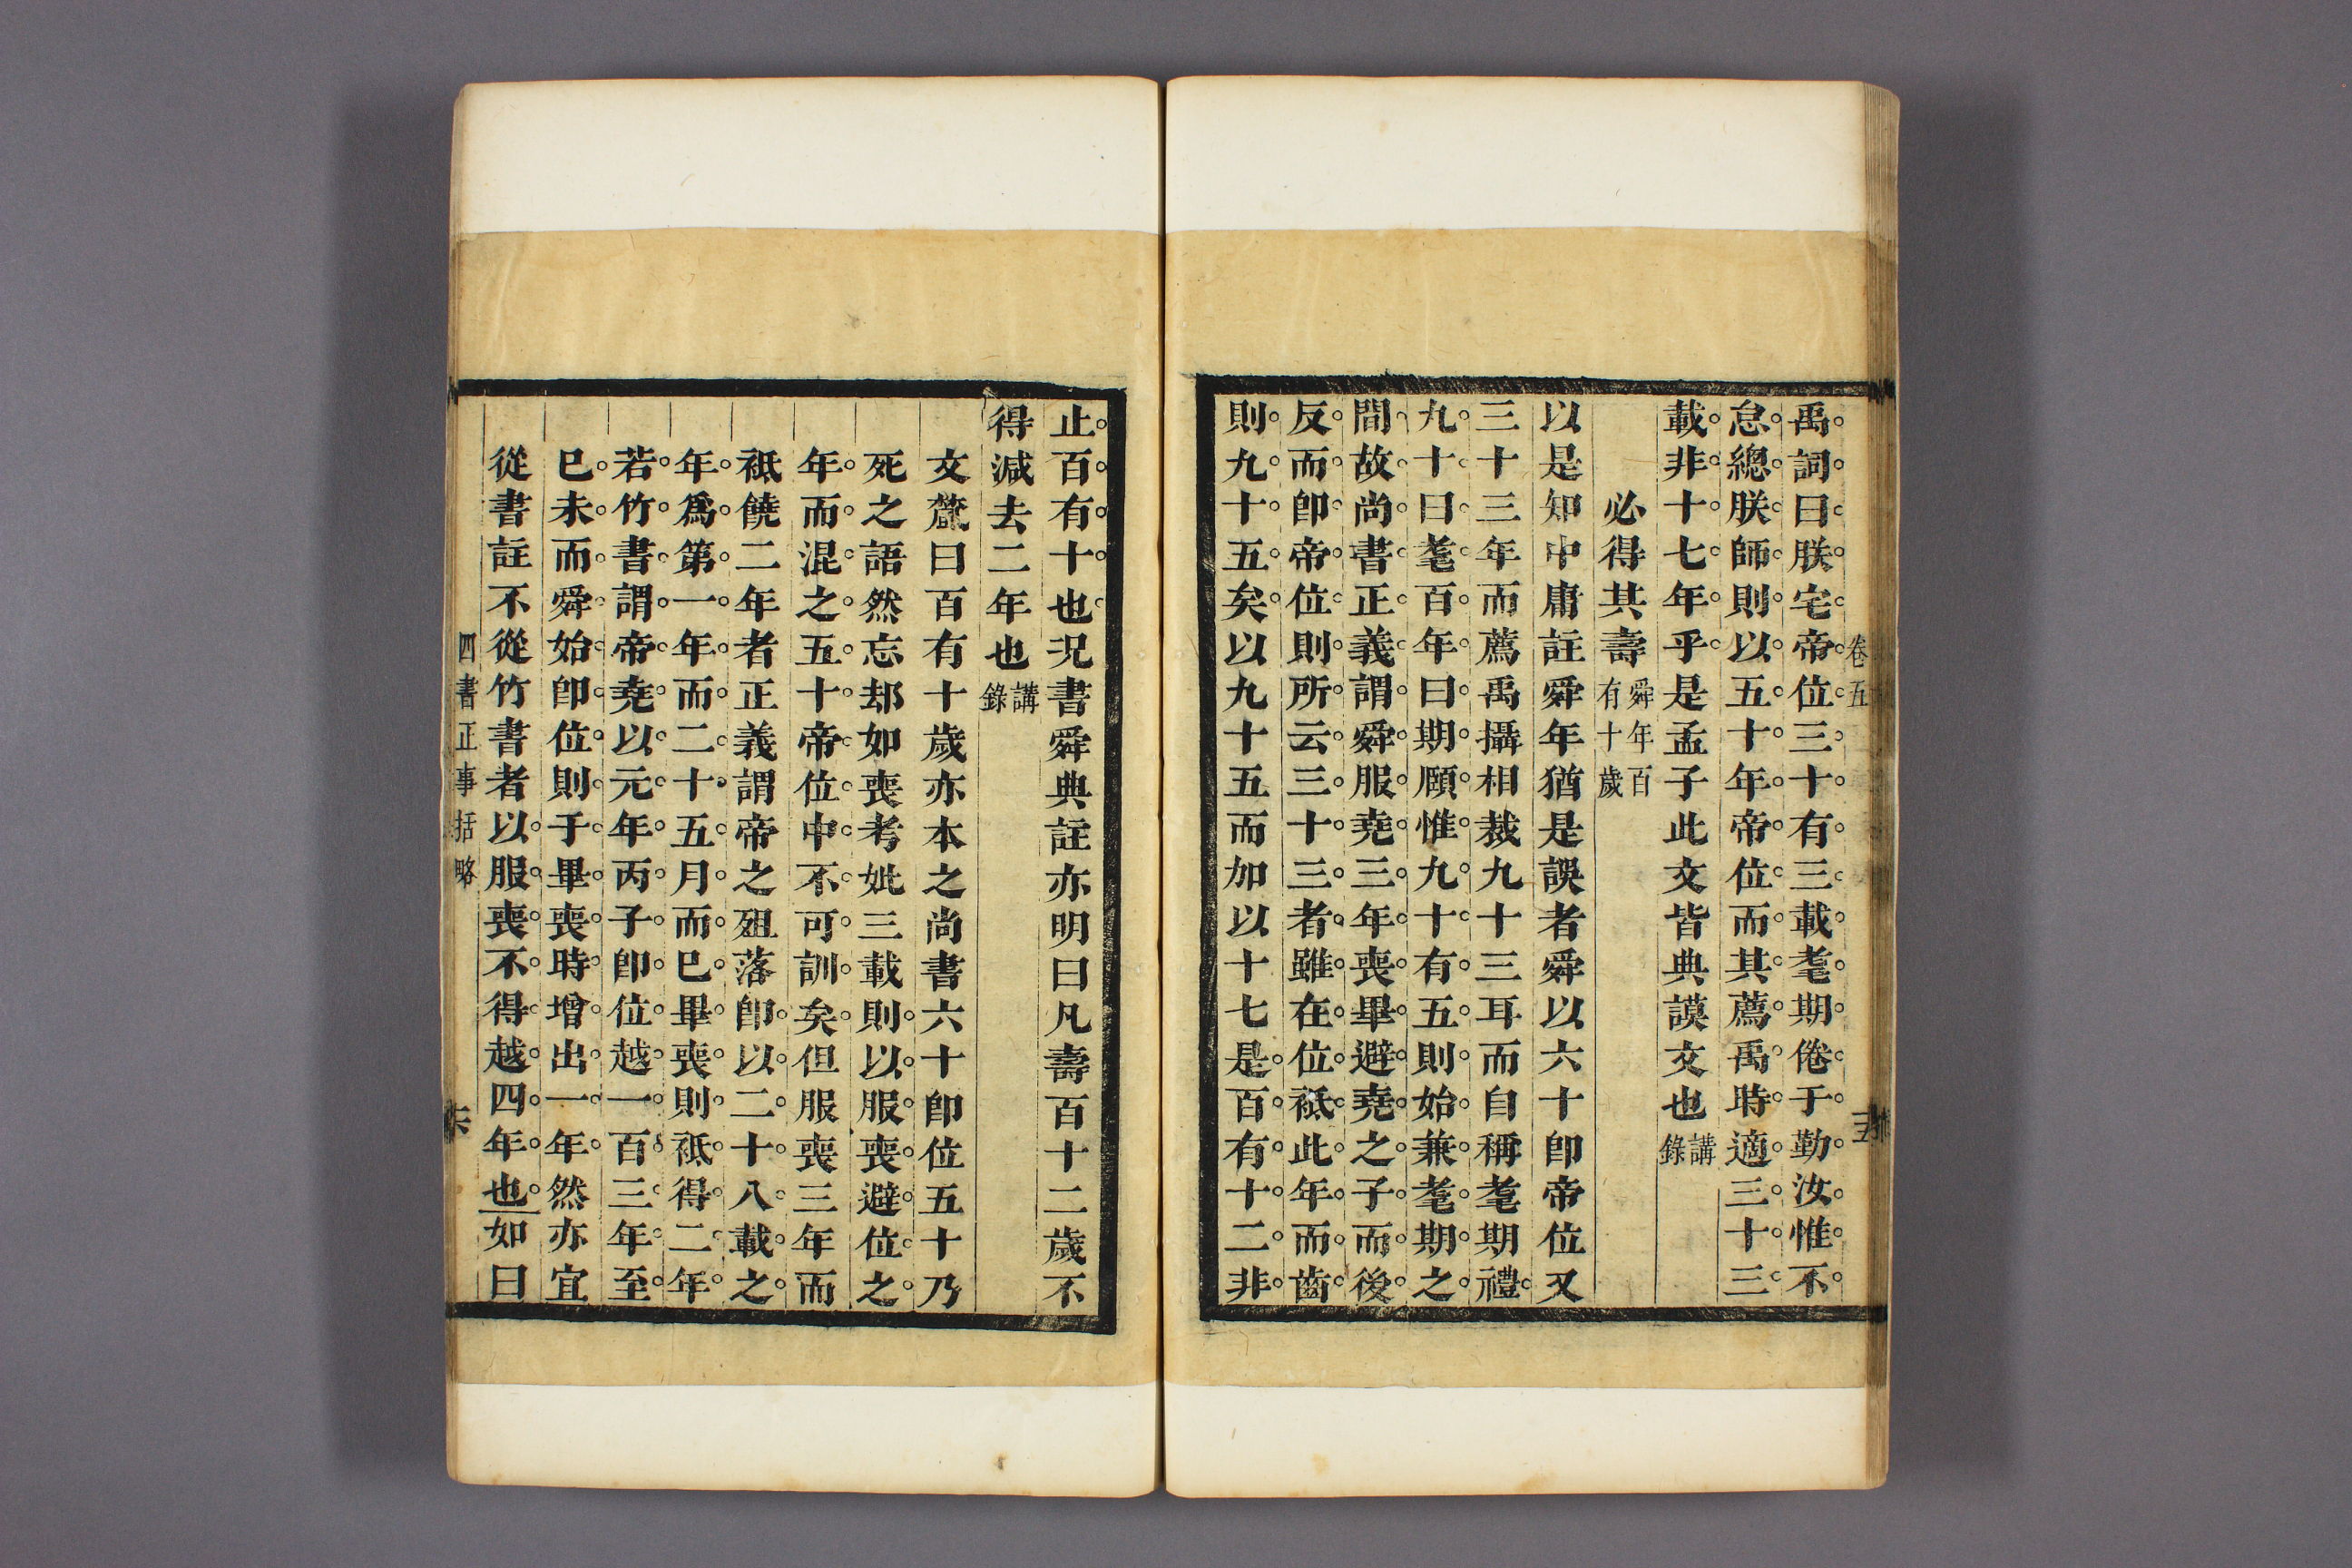 卷五
禹詞曰朕宅帝位三十有三載耄期倦于勤汝惟不
怠總朕師則以五十年帝位而其薦禹時適三十三
載非十七年乎是孟子此文皆典謨文也講錄
必得其壽舜年百有十歲
以是知中庸註舜年猶是誤者舜以六十卽帝位又
三十三年而薦禹攝相裁九十三耳而自稱耄期禮
九十曰耄百年曰期頤惟九十有五則始兼耄期之
間故尚書正義謂舜服堯三年喪畢避堯之子而後
反而卽帝位則所云三十三者雖在位祗此年而齒
則九十五矣以九十五而加以十七是百有十二非
止百有十也況書舜典註亦明曰凡壽百十二歲不
得減去二年也講錄
文虨曰百有十歲亦本之尚書六十卽位五十乃
死之語然忘却如喪考妣三載則以服喪避位之
年而混之五十帝位中不可訓矣但服喪三年而
祗饒二年者正義謂帝之殂落卽以二十八載之
年爲第一年而二十五月而已畢喪則祗得二年
若竹書謂帝堯以元年丙子卽位越一百三年至
巳未而舜始卽位則于畢喪時增出一年然亦宜
從書註不從竹書者以服喪不得越四年也如曰
四書正事括略